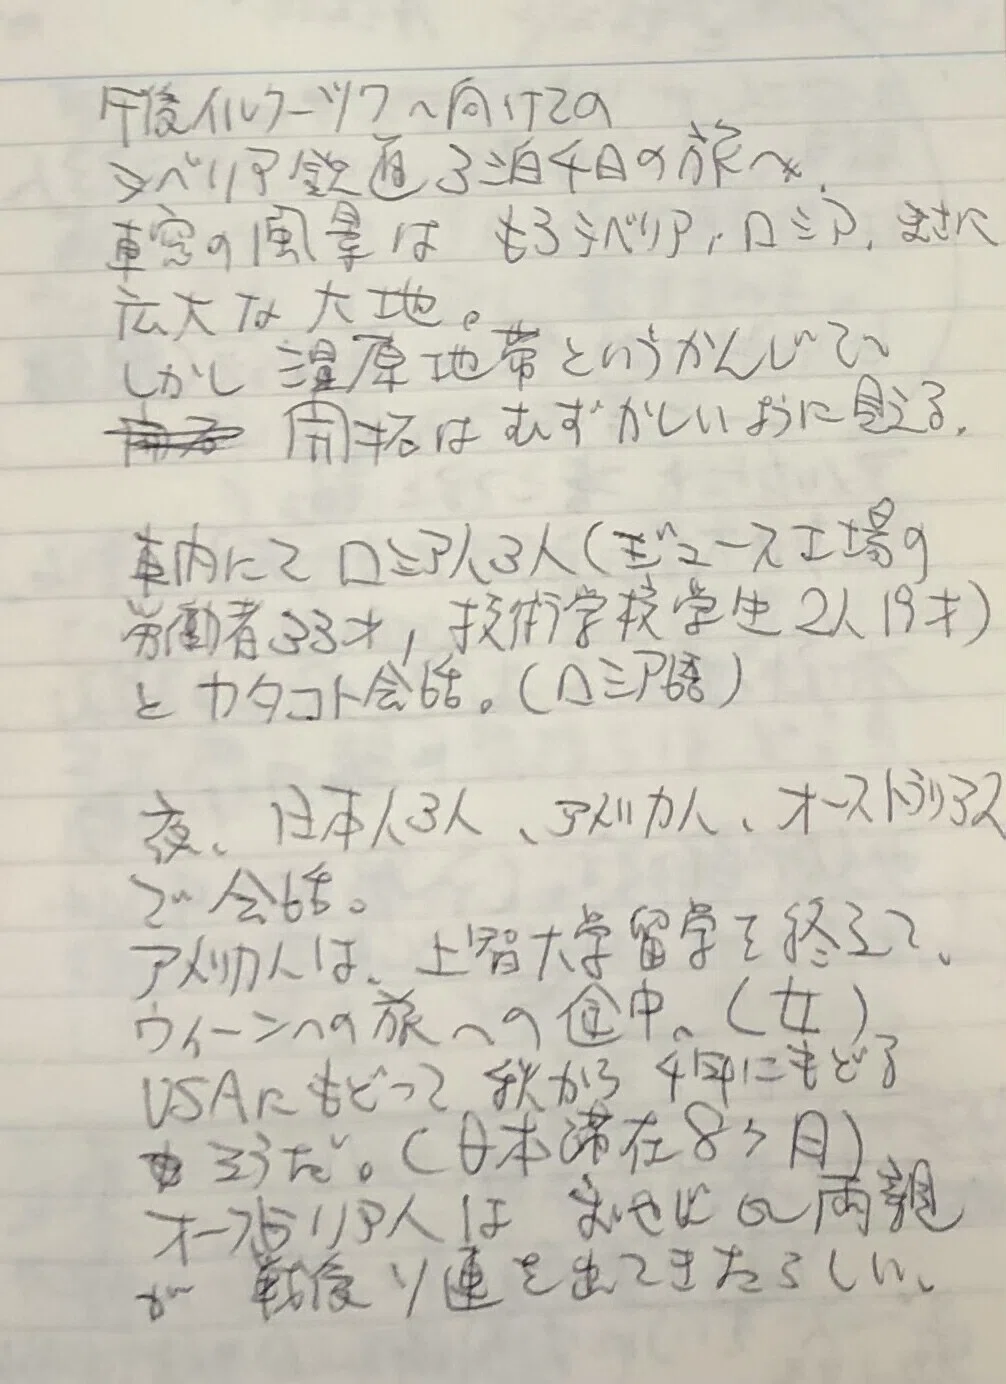 午後イルクーツクへ向けての
シベリア鉄道3泊4日の旅へ.
車窓の風景は もろシベリア, ロシア, まさに
広大な大地。
しかし 湿原地帯というかんじで、
開拓はむずかしいように見える.
車内にて ロシア人3人(ジュース工場の
労働者33才, 技術学校学生2人19才)
とカタコト会話。(ロシア語)
夜、日本人3人、アメリカ人、オーストラリア人
で会話。
アメリカ人は、上智大学留学を終えて、
ウィーンへの旅への途中。(女)
USAにもどって 秋から4年にもどる
そうだ。(日本滞在8ヶ月)
オーストラリア人は の両親
が 戦後ソ連を出てきたらしい、